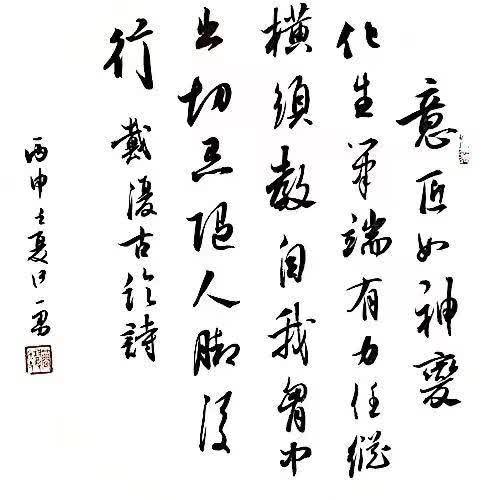 意匠如神變
化生筆端有力任縱
橫須教自我胸中
出切忌隨人脚後
行 戴復古論詩
丙申之夏